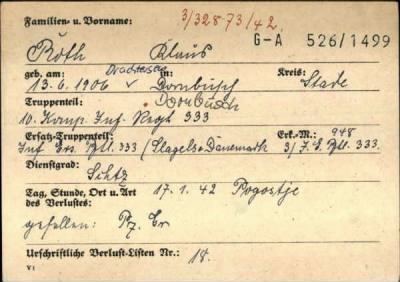 Familien- u. Vorname:
3/328 73/42.
G-A 526/1499
Röth Klaus
geb. am: in: Kreis:
13. 6. 1906 Dornbusch Stade
Truppenteil: Dornbusch
10. Komp. Inf. Regt 333
Ersatz-Truppenteil: Erk.-M.: 948
Inf. Ers. Btl. 333 / Slagelse Dänemark 3/J. E. Btl. 333.
Dienstgrad:
Schtz
Tag, Stunde, Ort u. Art des Verlustes: 17. 1. 42 Pogostje
gefallen:
Urschriftliche Verlust-Listen Nr.: 18.
V1